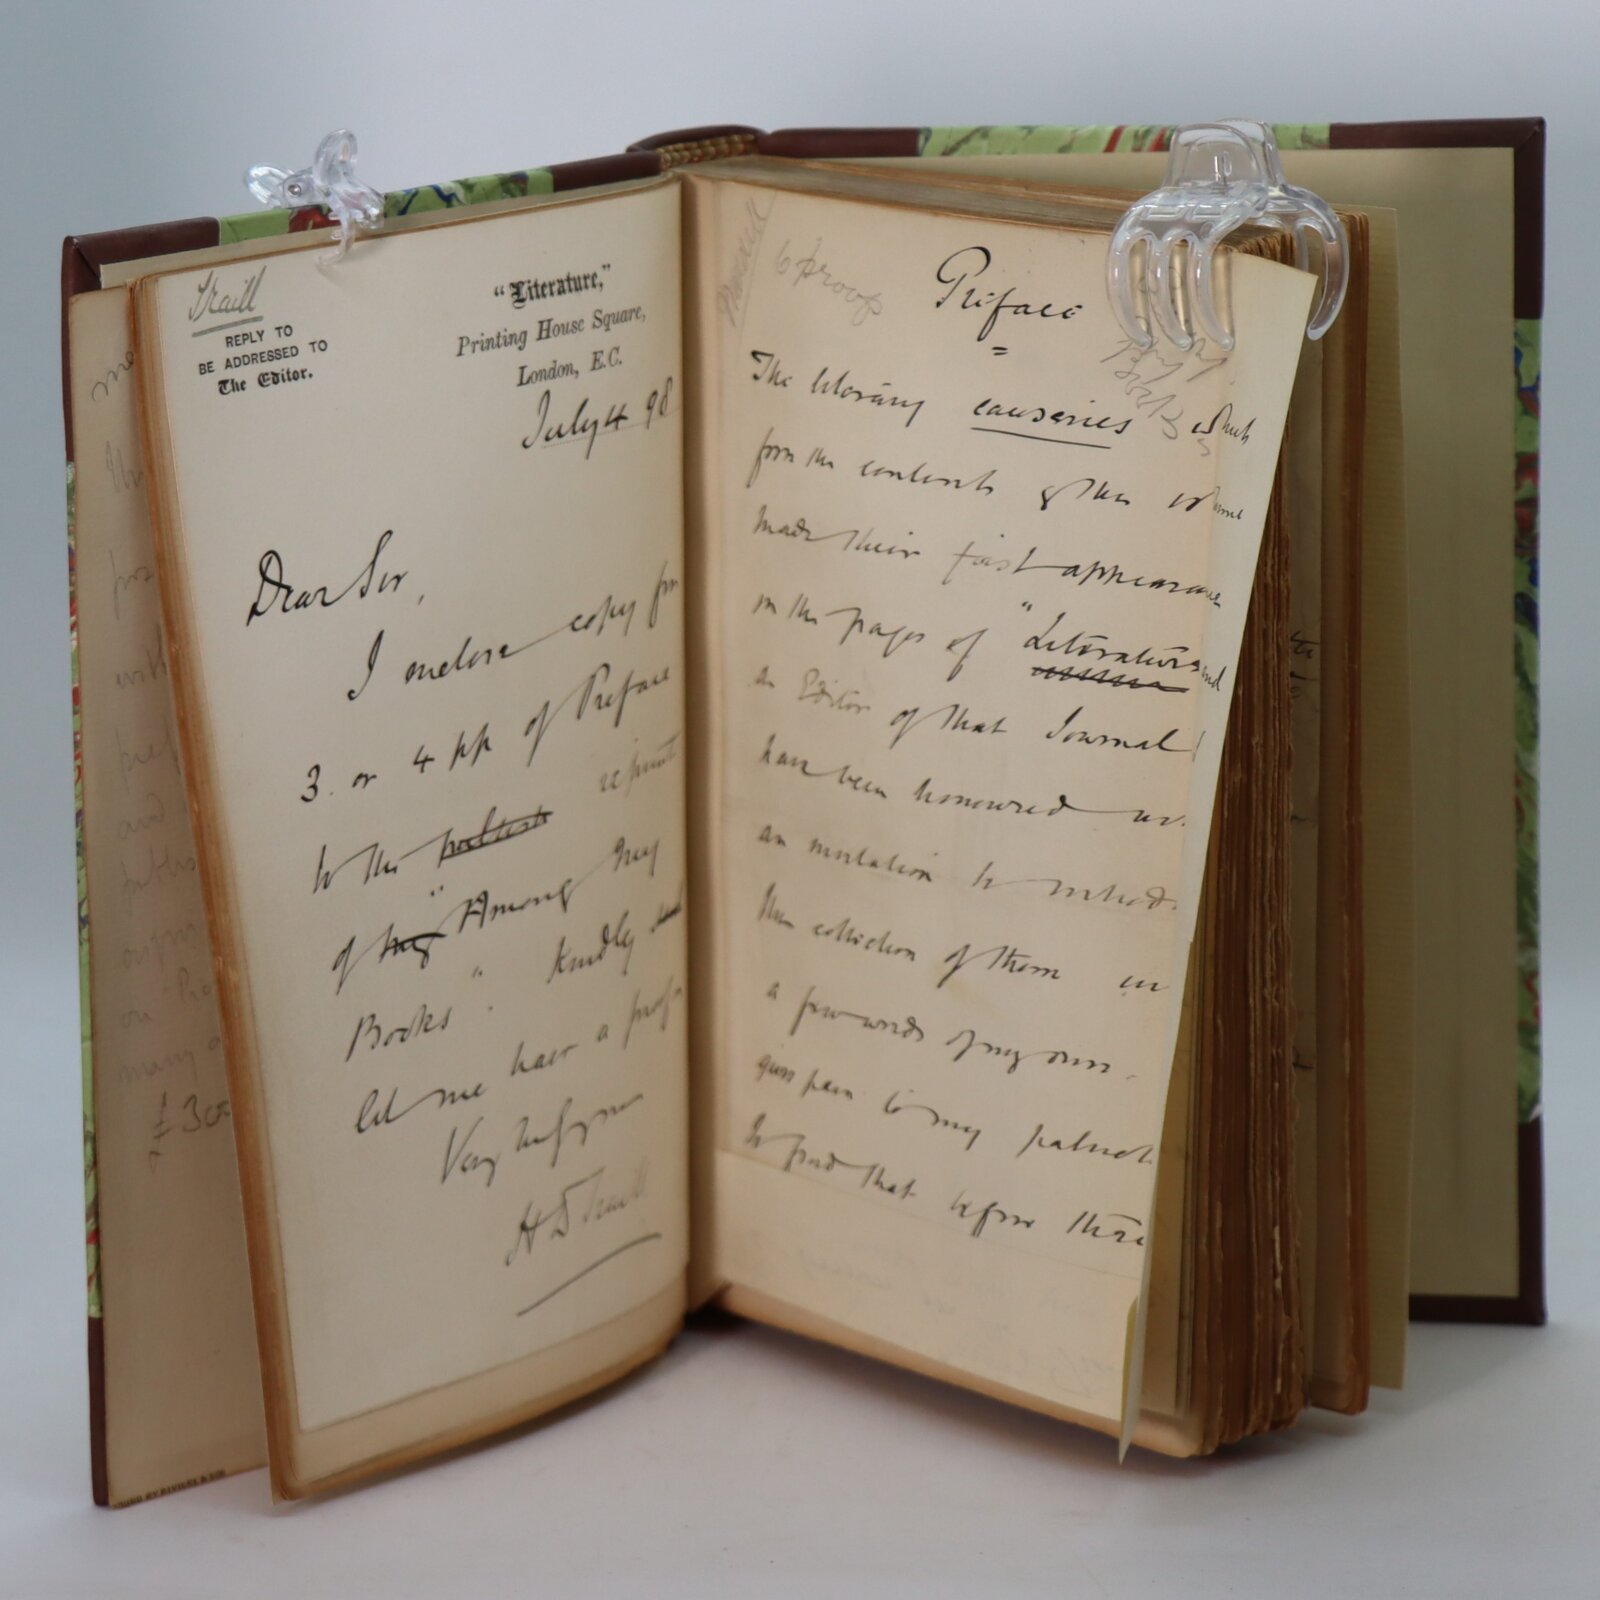 Traill
REPLY TO
BE ADDRESSED TO
The Editor.
"Literature,"
Printing House Square,
London, E.C.
July 4 98
Dear Sir,
I enclose copy for
3 or 4 pp of Preface
to the publish reprint
of my "Among my
Books". Kindly
let me have a proof
Very truly yours
H D Traill
6 proofs
Preface
The literary causeries which
form the contents of this volume
made their first appearance
in the pages of "Literature and
as Editor of that Journal I
have been honoured w
an invitation to introd
this collection of them in
a few words of my own.
gives pain to my
to find that before these
me
with
pref
and
publis
on
many
£300
BOUND BY RIVIERE & SON